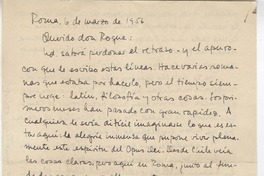 Roma, 6 de marzo de 1956
Querido don Roque:
Ud. sabrá perdonar el retraso - y el apuro -
con que le escribo estas líneas. Hace varias sema-
nas que estaba por hacerlo, pero el tiempo siem-
pre coge: latín, filosofía y otras cosas. Los pri-
meros meses han pasado con gran rapidez. A
cualquiera le sería difícil imaginarse lo que es es-
tar aquí: la alegría inmensa que supone vivir plena-
mente este espíritu del Opus Dei. Desde Chile veía
las cosas claras, pero aquí en Roma, junto al fun-